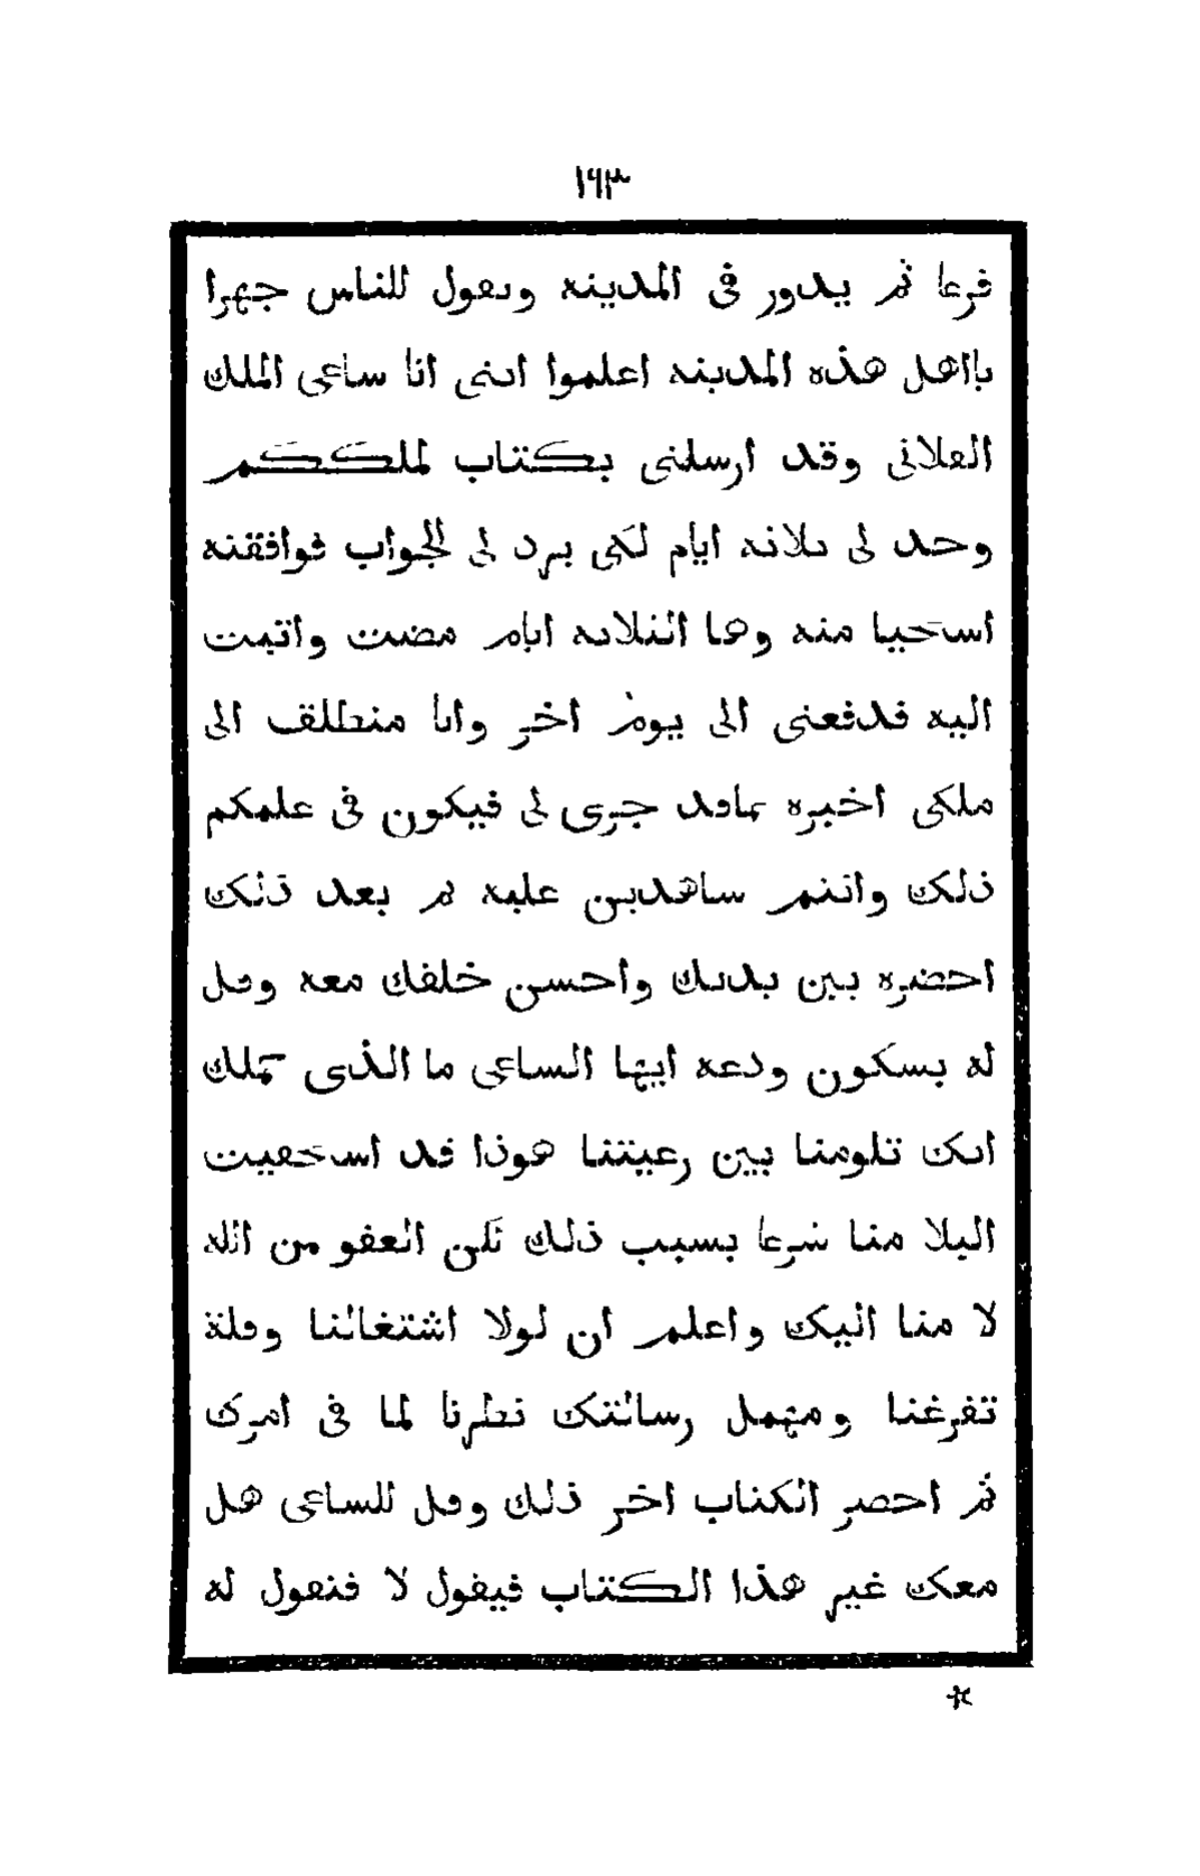 ١٦٣
فرعا ثم يدور فى المدينه ويقول للناس جهرا
يااهل هذه المدينه اعلموا اننى انا ساعى الملك
الفلانى وقد ارسلنى بكتاب لملككم
وحد لى ثلاثه ايام لكى يرد لى الجواب فوافقته
استحيا منه وها الثلاثه ايام مضت واتيت
اليه فدفعنى الى يوم اخر وانا منطلق الى
ملكى اخبره بماقد جرى لى فيكون فى علمكم
ذلك وانتم شاهدين عليه ثم بعد ذلك
احضره بين يديك واحسن خلقك معه وقل
له بسكون ودعه ايها الساعى ما الذى حملك
انك تلومنا بين رعيتنا هوذا قد استحقيت
البلا منا شرعا بسبب ذلك لكن العفو من الله
لا منا اليك واعلم ان لولا اشتغالنا وقلة
تفرغنا ومهمل رسالتك نظرنا لما فى امرك
ثم احضر الكتاب اخر ذلك وقل للساعى هل
معك غير هذا الكتاب فيقول لا فتقول له